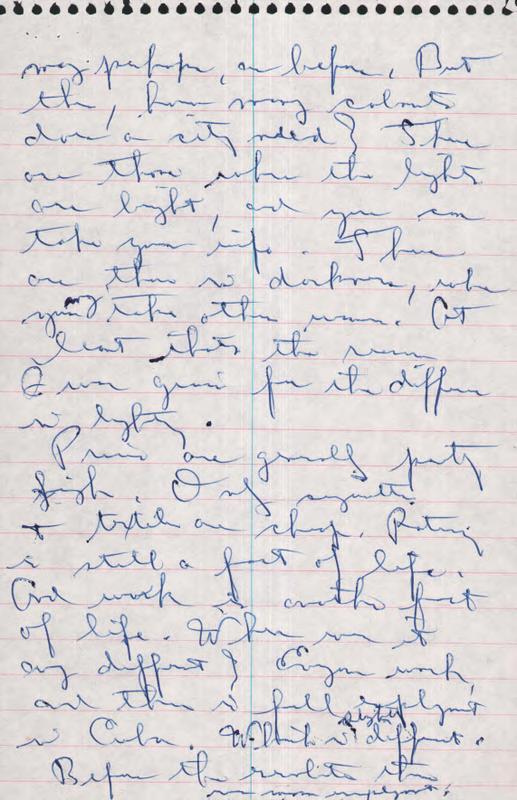 may perhaps, as before. But
then, how many cabarets
does a city need? There
are those where the lights
are bright, and you can
take your wife. There
are those in darkness, where
you may take other women. At
least that's the reason
I was given for the difference
in lighting.
Prices are generally pretty
high. Only cigarettes
+ textiles are cheap. Rationing
is still a fact of life.
And work is another fact
of life. When was it
any different? Everyone works,
and there is full employment
in Cuba. What is slightly different.
Before the revolution there
was mass unemployment.